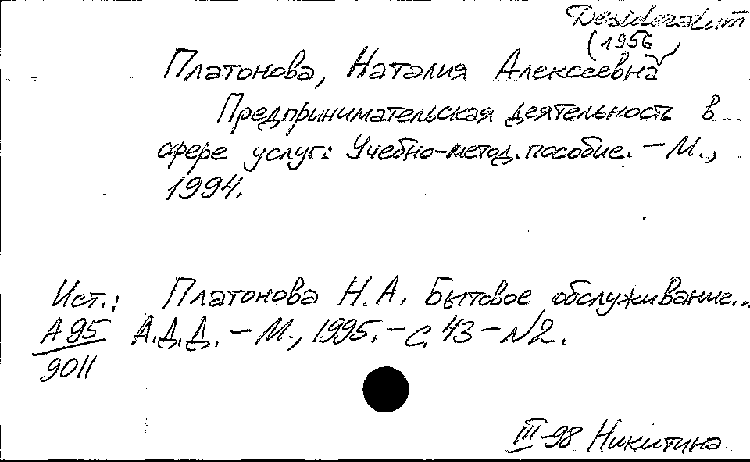 Desideratum
(1956
Платонова, Наталия Алексеевна
Предпринимательская деятельность в
сфере услуг: Учебно-метод. пособие. - М.,
1994.
Ист.: Платонова Н.А. Бытовое обслуживание...
А95 А.Д.Д. - М., 1995. - с. 43 - №2.
9011
III-98 Никитина